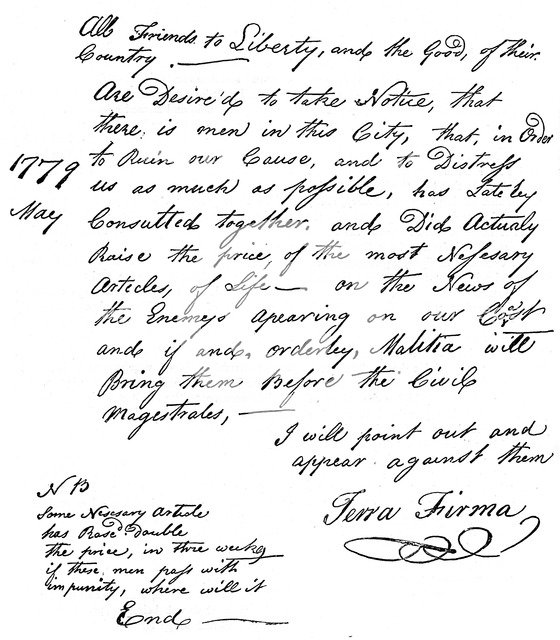 All Friends to Liberty, and the Good, of their
Country. —
Are Desire'd to take Notice, that
there is men in this City, that, in Order
to Ruin our Cause, and to Distress
us as much as possible, has Lateley
Consulted together. and Did Actualy
Raise the price, of the most Nesesary
Articles, of Life — on the News of
the Enemeys apearing on our Coast
and if and, orderley, Malitia will
Bring them Before the Civil
Magestrates, —
I will point out and
appear against them
Terra Firma
1779
May
NB
Some Nesesary Article
has Rase'd double
the price, in three weeks
if these men pass with
impunity, where will it
End —